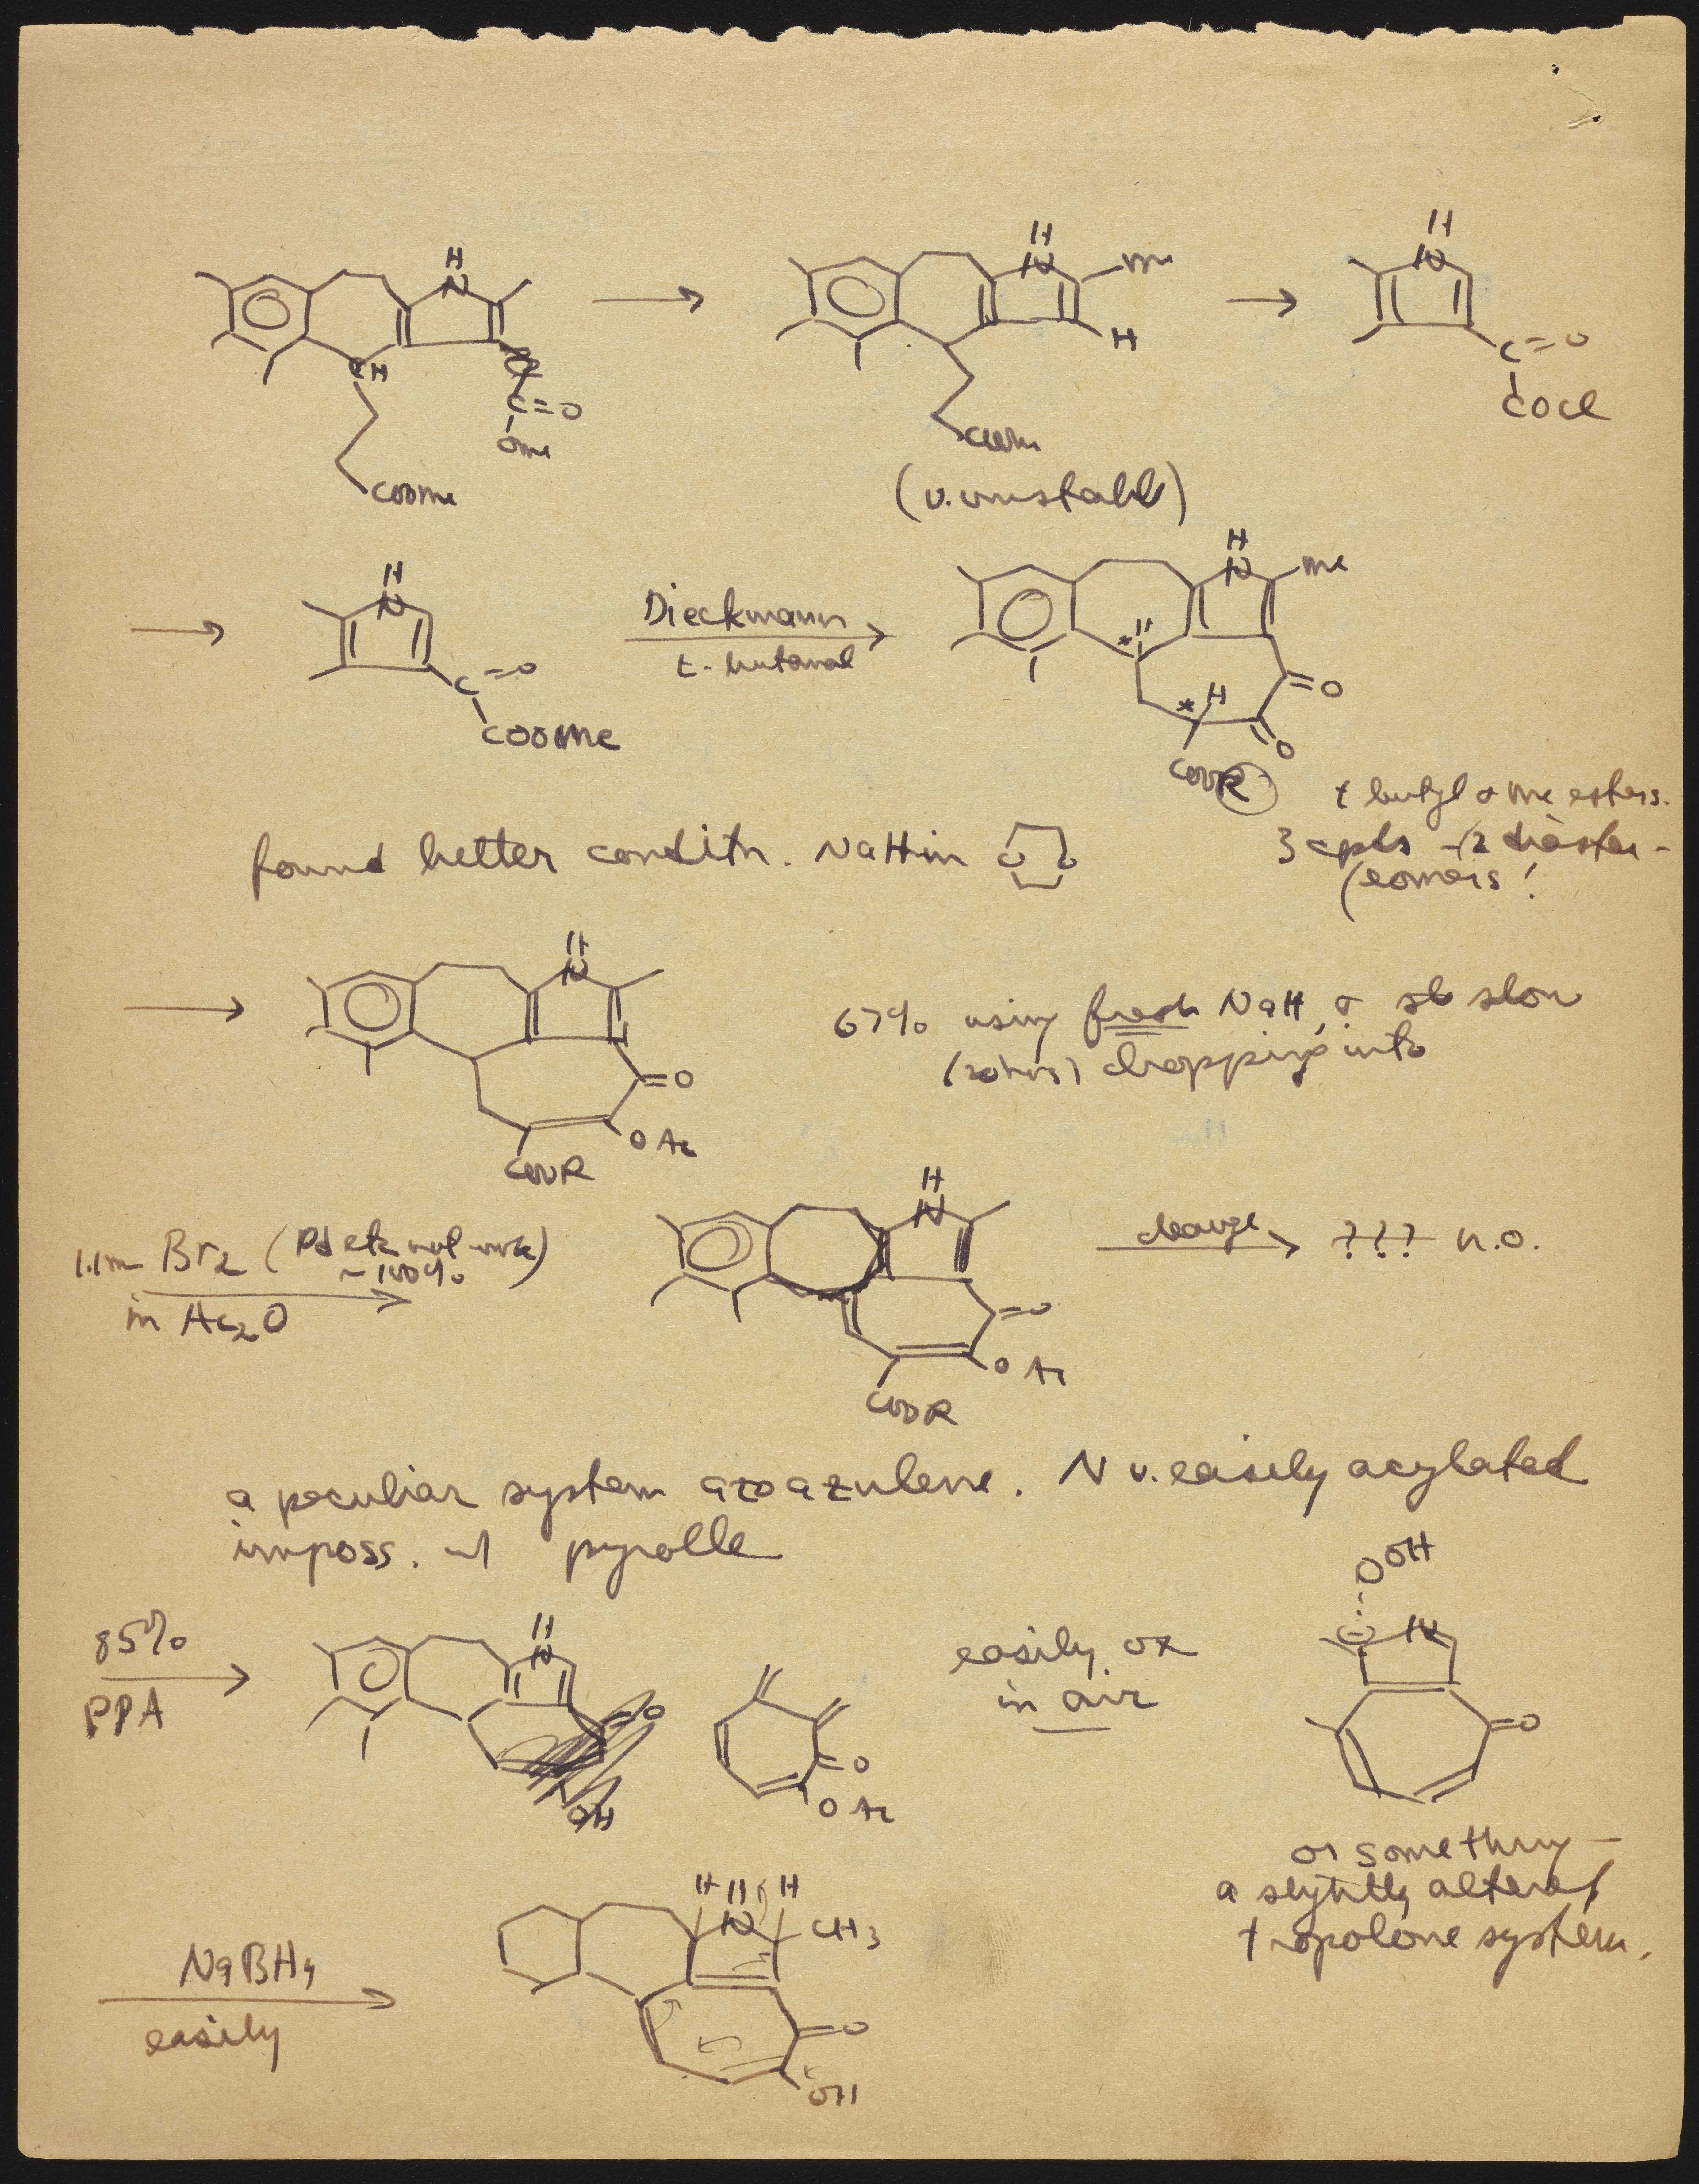 H
N
CH
C=O
OMe
COOMe
H
N
Me
H
COOMe
(v. unstable)
H
N
C=O
COCl
H
N
C=O
COOMe
Dieckmann
t-butanol
H
N
Me
*H
*H
O
O
COOR
t butyl & Me esters.
3 cpds - (2 diaster-
eomers!
found better conditn. NaH in O O
H
N
O
OAc
COOR
67% using fresh NaH, & slow
(20 hrs) dropping into
1.1 m Br2 (Pd etc not work)
~100%
in Ac2O
H
N
O
OAc
COOR
change
??? n.o.
a peculiar system azoazulene. N v. easily acylated
imposs. w/ pyrolle
85%
PPA
H
N
O
OH
O
OAc
easily ox
in air
OOH
N
O
or something —
a slightly altered
tropolone system.
NaBH4
easily
H H H
N
CH3
O
OH